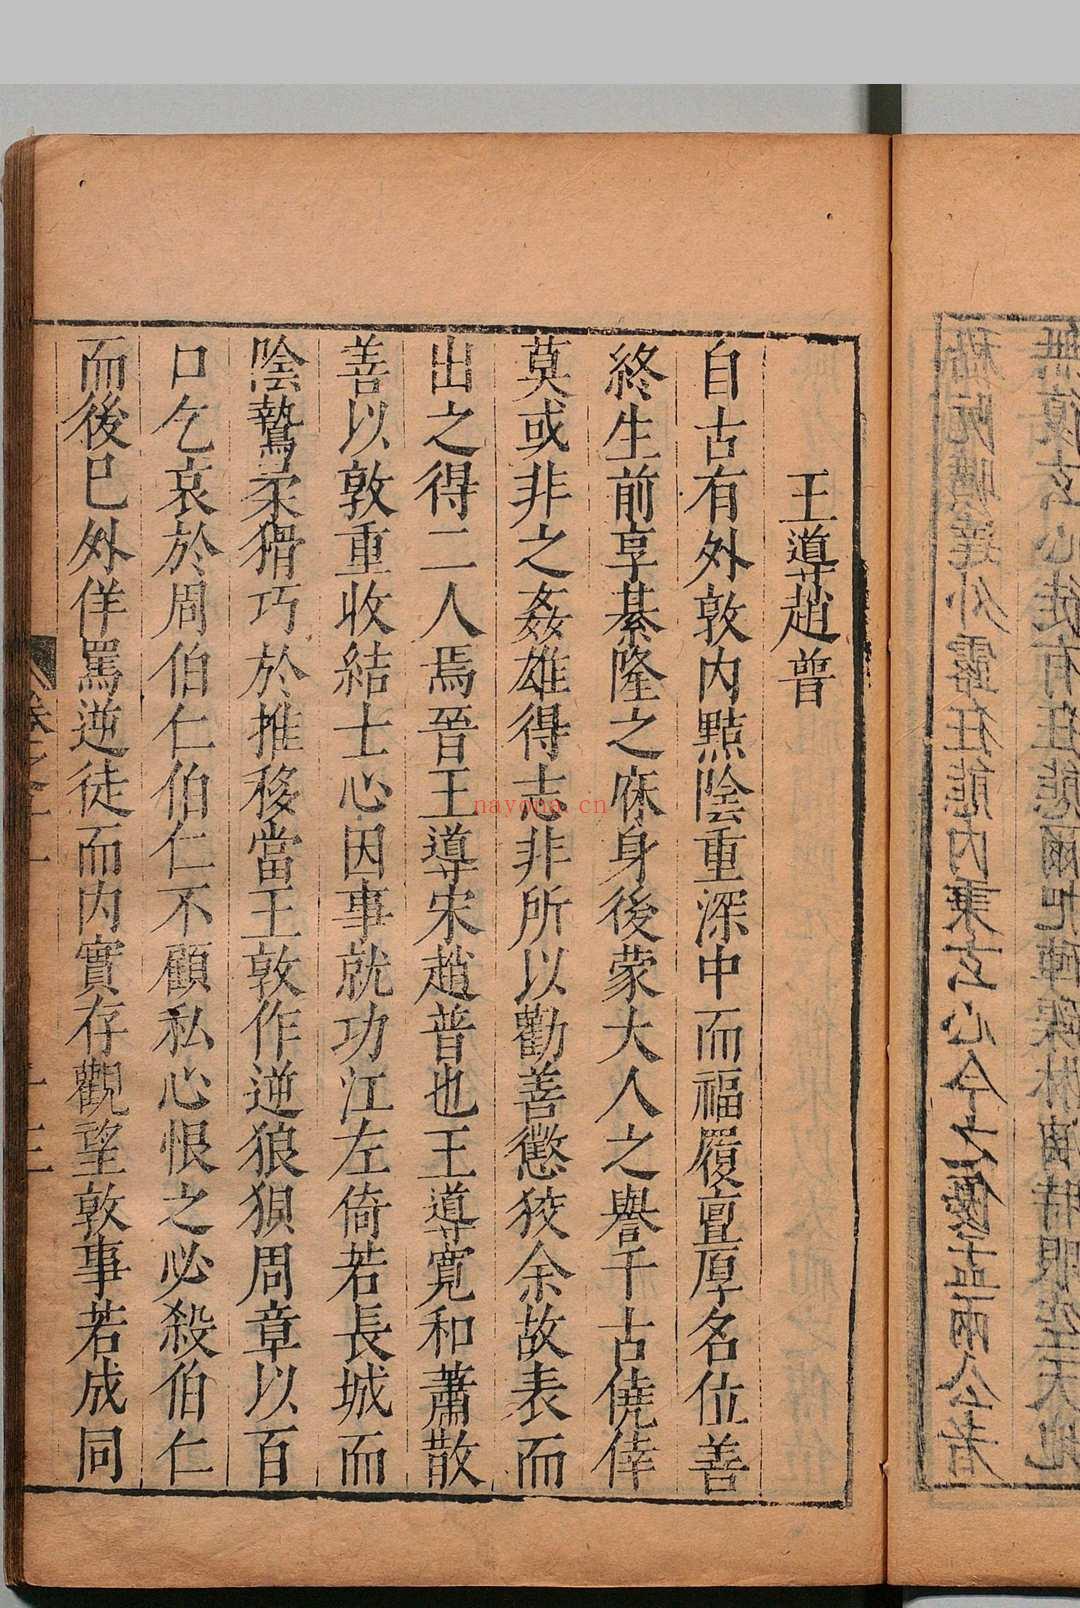 王導趙普
自古有外敦内黠陰重深中而福履亶厚名位善
終生前享綦隆之庥身後蒙大人之譽千古僥倖
莫或非之姦雄得志非所以勸善懲狡余故表而
出之得二人焉晉王導宋趙普也王導寛和蕭散
善以敦重收結士心因事就功江左倚若長城而
陰鷙柔猾巧於推移當王敦作逆狼狽周章以百
口乞哀於周伯仁伯仁不顧私心恨之必殺伯仁
而後巳外佯罵逆徒而内實存觀望敦事若成同
nayona.cn